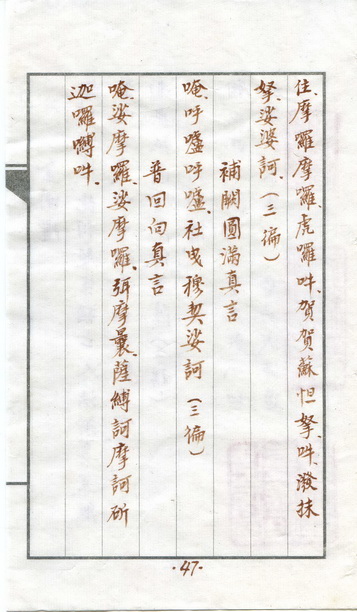 住、摩囉摩囉、虎囉吽、賀賀蘇怛拏、吽、潑抹
拏、娑婆訶、（三徧）
補闕圓滿真言
唵、呼嚧呼嚧、社曳穆契娑訶（三徧）
普回向真言
唵、娑摩囉、娑摩囉、弭摩曩、薩縛訶、摩訶斫
迦囉嚩吽、
·47·